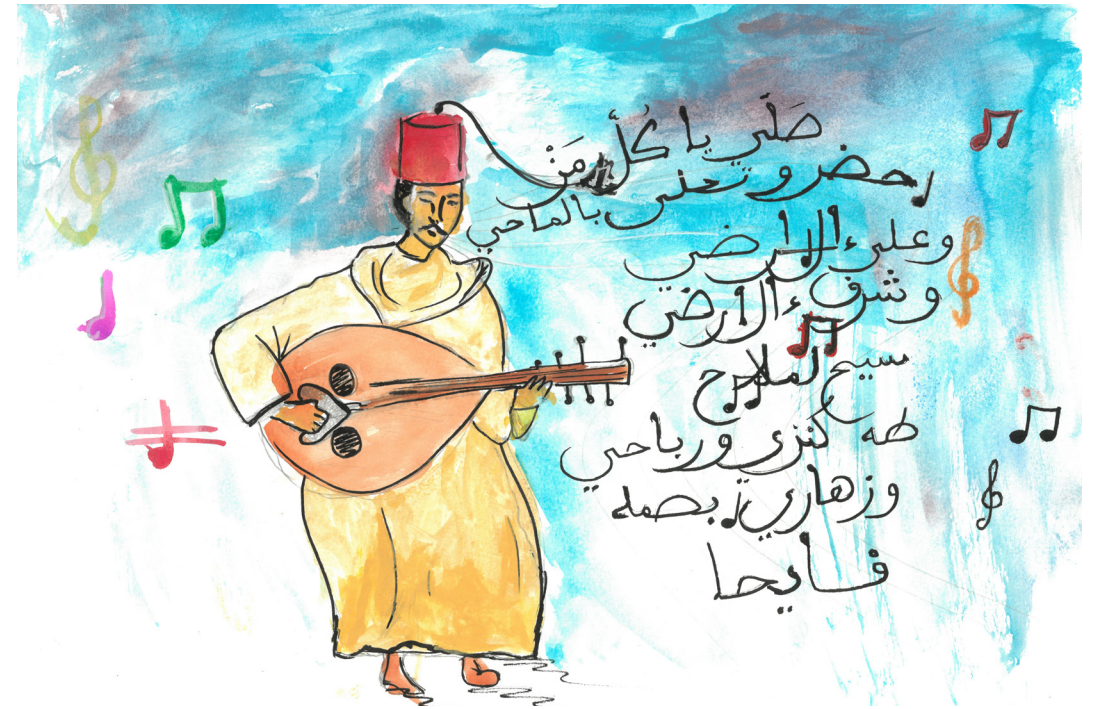 صَلّي يا كُلّ مَنْ
حضر وتعنى بالماحي
وعلىء الارضي
وشرفء الارضي
سيح الملاح
طه كنزي ورباحي
وزهاري بصمله
فايحا